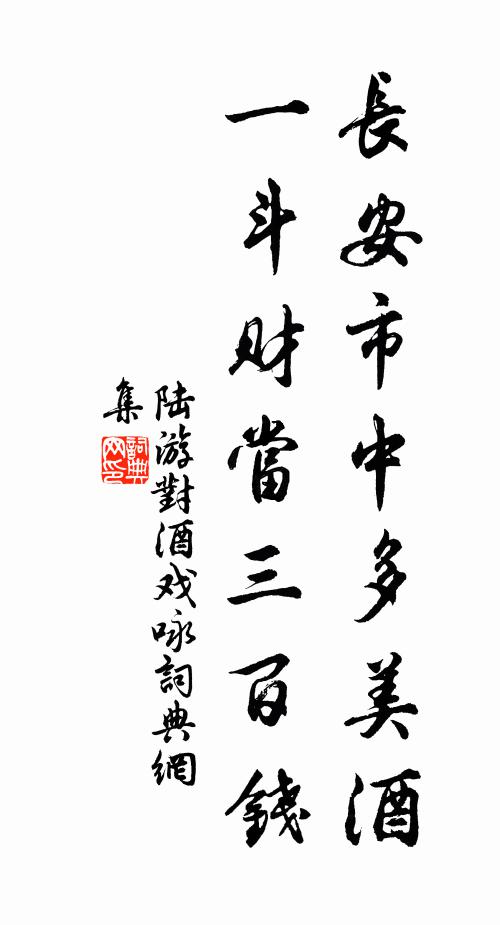 長安市中多美酒
一斗财當三百錢
陆游對酒戏咏詞典網
集
詞典网印